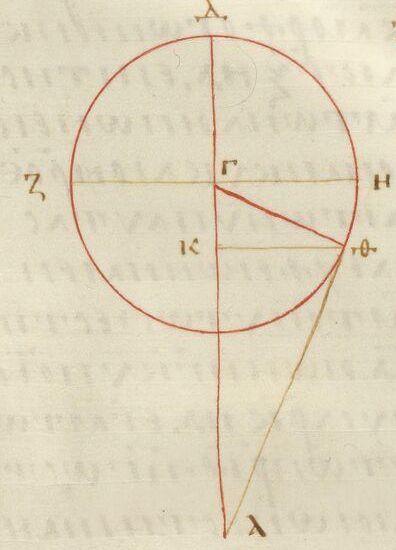 Δ
Ζ Γ Η
Κ Θ
Α